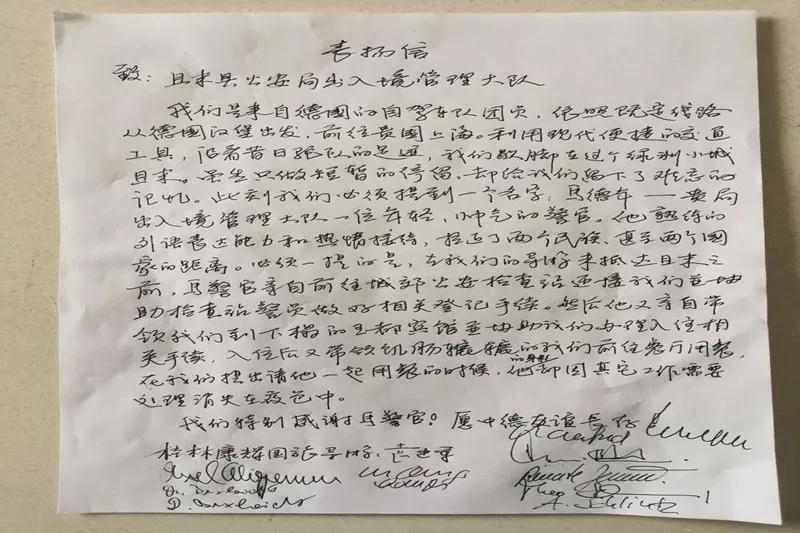 表扬信
致：且末县公安局出入境管理大队
我们是来自德國的自驾车队团员，依照既定线路
从德國汉堡出发，前往贵國上海。利用现代便捷的交通
工具，沿着昔日驼队的足迹，我们歇脚在这个绿洲小城
且末。虽然只做短暂的停留，却给我们留下了难忘的
记忆。此刻我们必须提到一个名字：马德年——贵局
出入境管理大队一位年轻、帅气的警官。他熟练的
外语表达能力和热情接待，拉近了两个民族、甚至两个國
家的距离。必须一提的是，在我们的导游未抵达且末之
前，马警官亲自前往城郊公安检查站迎接我们并协
助检查站警员做好相关登记手续。然后他又亲自带
领我们到下榻的玉都宾馆并协助我们办理入住相
关手续，入住后又带领饥肠辘辘的我们前往餐厅用餐，
在我们提出请他一起用餐的时候，他却因其它工作需要
处理消失在夜色中。
我们特别感谢马警官！愿中德友谊长存！
桂林康辉国旅导游：